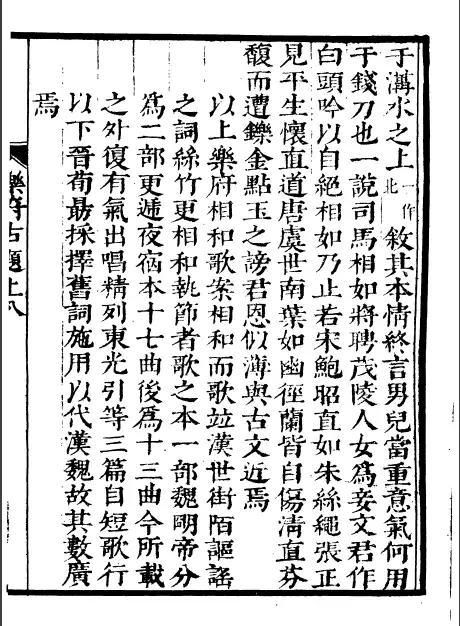 于溝水之上一作北敘其本情終言男兒當重意氣何用
于錢刀也一說司馬相如將聘茂陵人女爲妾文君作
白頭吟以自絕相如乃止若宋鮑昭直如朱絲繩張正
見平生懷直道唐虞世南葉如幽徑蘭皆自傷清直芬
馥而遭鑠金點玉之謗君恩似薄與古文近焉
以上樂府相和歌案相和而歌竝漢世街陌謳謠
之詞絲竹更相和執節者歌之本一部魏明帝分
爲二部更遞夜宿本十七曲後爲十三曲今所載
之外復有氣出唱精列東光引等三篇自短歌行
以下晉荀勗採擇舊詞施用以代漢魏故其數廣
焉
樂府古題上八